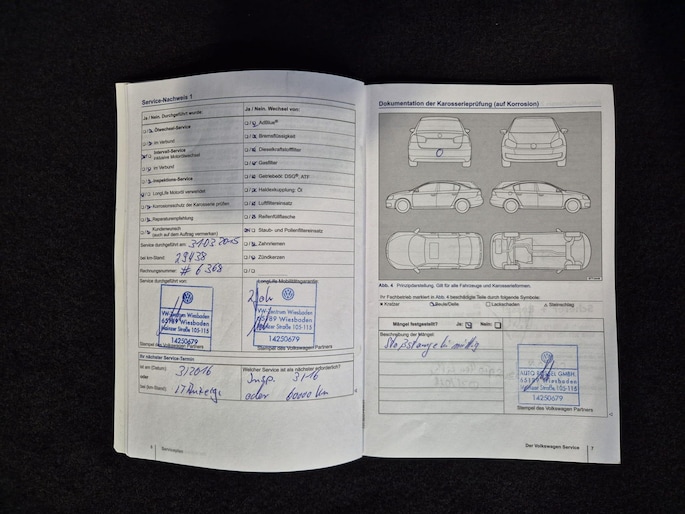 Service-Nachweis 1
Ja / Nein. Durchgeführt wurde:
Ölwechsel-Service
im Verbund
Intervall-Service
inklusive Motorölwechsel
im Verbund
Inspektions-Service
LongLife Motoröl verwendet
Korrosionsschutz der Karosserie prüfen
Reparaturempfehlung
Kundenwunsch
(auch auf dem Auftrag vermerken)
Service durchgeführt am: 31.03.2015
bei km-Stand: 29438
Rechnungsnummer: # 6368
Service durchgeführt von:
VW-Zentrum Wiesbaden
65189 Wiesbaden
Mainzer Straße 105-115
14250679
Stempel des Volkswagen Partners
Ja / Nein. Wechsel von:
AdBlue®
Bremsflüssigkeit
Dieselkraftstofffilter
Gasfilter
Getriebeöl: DSG®, ATF
Haldexkupplung: Öl
Luftfiltereinsatz
Reifenfüllflasche
Staub- und Pollenfiltereinsatz
Zahnriemen
Zündkerzen
LongLife Mobilitätsgarantie
VW-Zentrum Wiesbaden
65189 Wiesbaden
Mainzer Straße 105-115
14250679
Stempel des Volkswagen Partners
Ihr nächster Service-Termin
Ist am (Datum): 3/2016
oder
bei (km-Stand):
Welcher Service ist als nächster erforderlich?
Insp. 3/16
oder 60000 km
6 Serviceplan
Dokumentation der Karosserieprüfung (auf Korrosion)
Abb. 4 Prinzipdarstellung. Gilt für alle Fahrzeuge und Karosserieformen.
Ihr Fachbetrieb markiert in Abb. 4 beschädigte Teile durch folgende Symbole:
Kratzer Beule/Delle Lackschaden Steinschlag
Mängel festgestellt? Ja: Nein:
Beschreibung der Mängel:
65189 Wiesbaden
Mainzer Straße 105-115
14250679
Stempel des Volkswagen Partners
Der Volkswagen Service 7